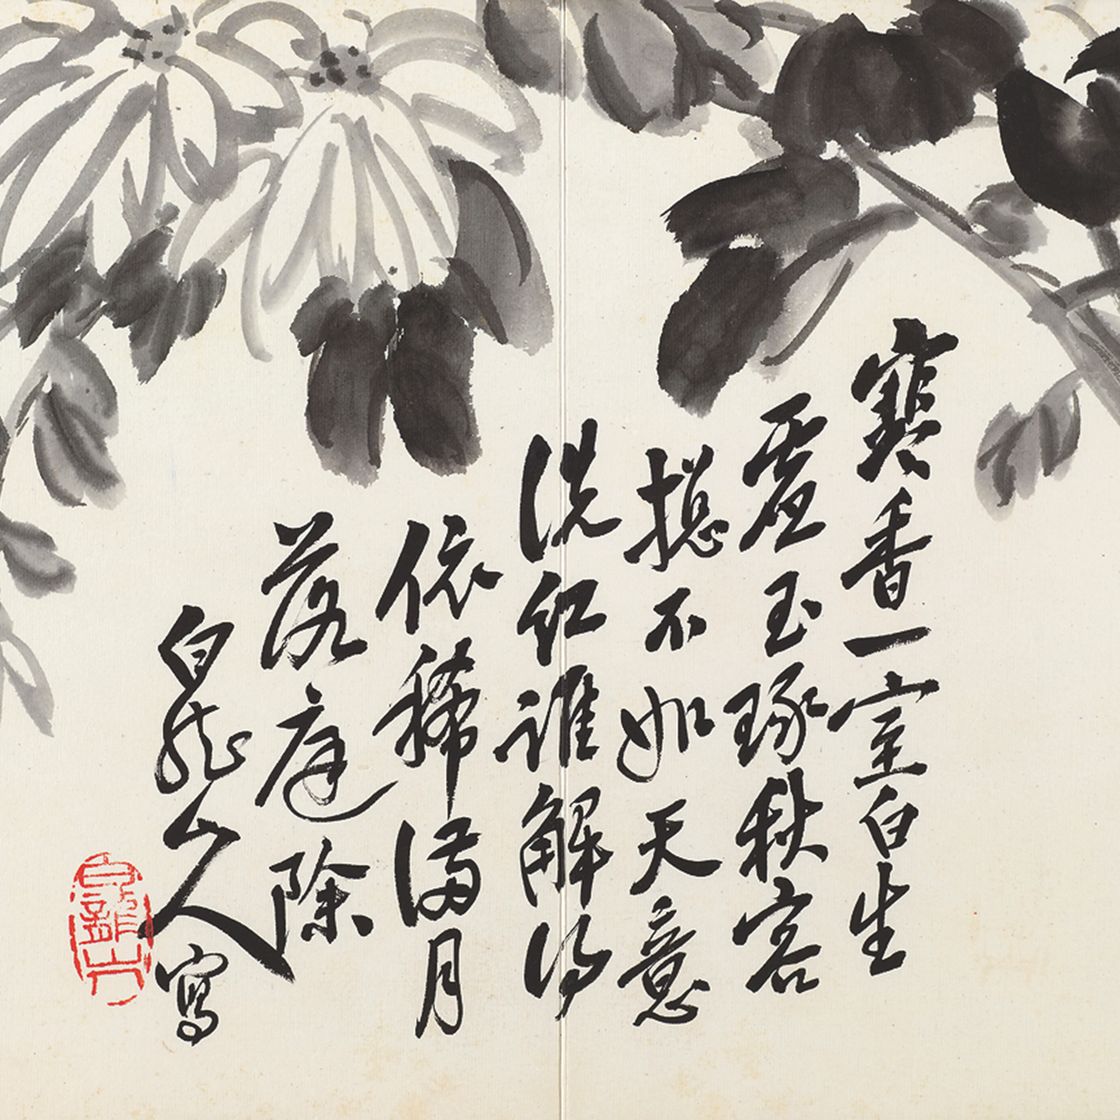 寒香一室白生
虛玉琢秋容
摠不如天意
洗紅誰解得
依稀滿月
落庭除
白龍山人寫
白龍山人